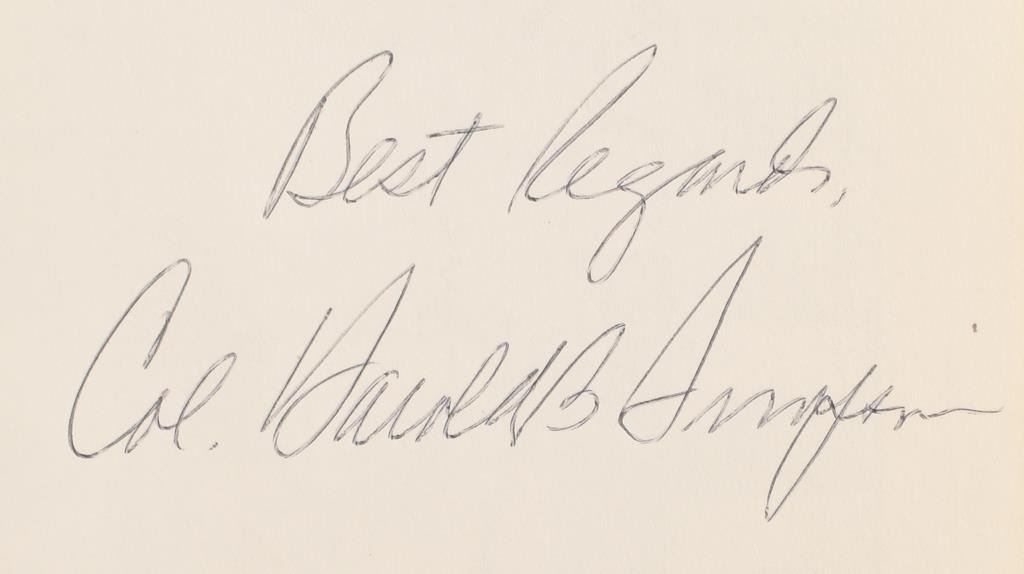 Best Regards,
Col. Harold B Simpson